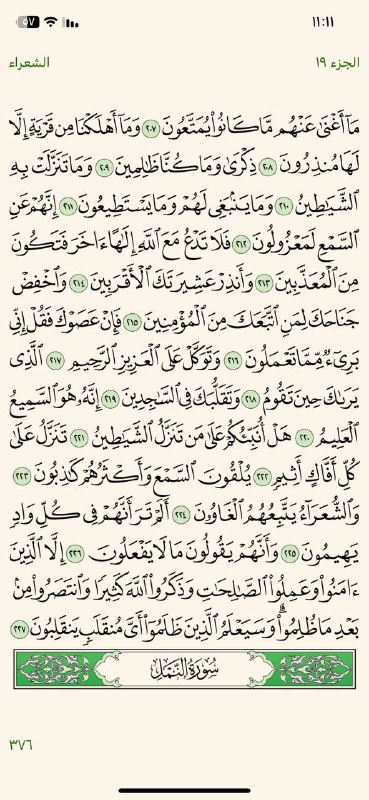 ١١:١١
٥٧
الجزء ١٩
الشعراء
مَآ أَغْنَىٰ عَنْهُم مَّا كَانُوا۟ يُمَتَّعُونَ ٢٠٧ وَمَآ أَهْلَكْنَا مِن قَرْيَةٍ إِلَّا
لَهَا مُنذِرُونَ ٢٠٨ ذِكْرَىٰ وَمَا كُنَّا ظَٰلِمِينَ ٢٠٩ وَمَا تَنَزَّلَتْ بِهِ
ٱلشَّيَٰطِينُ ٢١٠ وَمَا يَنۢبَغِى لَهُمْ وَمَا يَسْتَطِيعُونَ ٢١١ إِنَّهُمْ عَنِ
ٱلسَّمْعِ لَمَعْزُولُونَ ٢١٢ فَلَا تَدْعُ مَعَ ٱللَّهِ إِلَٰهًا ءَاخَرَ فَتَكُونَ
مِنَ ٱلْمُعَذَّبِينَ ٢١٣ وَأَنذِرْ عَشِيرَتَكَ ٱلْأَقْرَبِينَ ٢١٤ وَٱخْفِضْ
جَنَاحَكَ لِمَنِ ٱتَّبَعَكَ مِنَ ٱلْمُؤْمِنِينَ ٢١٥ فَإِنْ عَصَوْكَ فَقُلْ إِنِّى
بَرِىٓءٌ مِّمَّا تَعْمَلُونَ ٢١٦ وَتَوَكَّلْ عَلَى ٱلْعَزِيزِ ٱلرَّحِيمِ ٢١٧ ٱلَّذِى
يَرَىٰكَ حِينَ تَقُومُ ٢١٨ وَتَقَلُّبَكَ فِى ٱلسَّٰجِدِينَ ٢١٩ إِنَّهُۥ هُوَ ٱلسَّمِيعُ
ٱلْعَلِيمُ ٢٢٠ هَلْ أُنَبِّئُكُمْ عَلَىٰ مَن تَنَزَّلُ ٱلشَّيَٰطِينُ ٢٢١ تَنَزَّلُ عَلَىٰ
كُلِّ أَفَّاكٍ أَثِيمٍ ٢٢٢ يُلْقُونَ ٱلسَّمْعَ وَأَكْثَرُهُمْ كَٰذِبُونَ ٢٢٣
وَٱلشُّعَرَآءُ يَتَّبِعُهُمُ ٱلْغَاوُۥنَ ٢٢٤ أَلَمْ تَرَ أَنَّهُمْ فِى كُلِّ وَادٍ
يَهِيمُونَ ٢٢٥ وَأَنَّهُمْ يَقُولُونَ مَا لَا يَفْعَلُونَ ٢٢٦ إِلَّا ٱلَّذِينَ
ءَامَنُوا۟ وَعَمِلُوا۟ ٱلصَّٰلِحَٰتِ وَذَكَرُوا۟ ٱللَّهَ كَثِيرًا وَٱنتَصَرُوا۟ مِنۢ
بَعْدِ مَا ظُلِمُوا۟ ۗ وَسَيَعْلَمُ ٱلَّذِينَ ظَلَمُوٓا۟ أَىَّ مُنقَلَبٍ يَنقَلِبُونَ ٢٢٧
سُورَةُ ٱلنَّمْلِ
٣٧٦